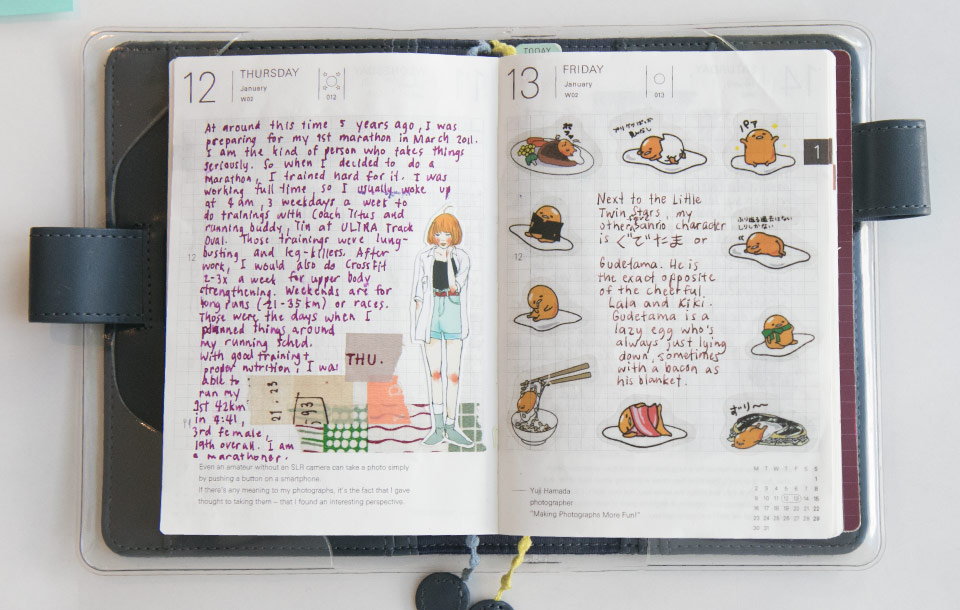 TODAY
12
THURSDAY
January
W02
012
At around this time 5 years ago, I was
preparing for my 1st marathon in March 2011.
I am the kind of person who takes things
seriously. So when I decided to do a
marathon, I trained hard for it. I was
working full time, so I usually woke up
at 4am, 3 weekdays a week to
do trainings with Coach Titus and
running buddy, Tin at ULTRA Track
Oval. Those trainings were lung-
busting and leg-killers. After
work, I would also do CrossFit
2-3x a week for upper body
strengthening. Weekends are for
long runs (21-35km) or races.
Those were the days when I
planned things around
my running sched.
With good training +
proper nutrition, I was
able to
run my
1st 42km
in 4:41,
3rd female,
19th overall. I am
a marathoner.
THU.
21.25
93
12
Even an amateur without an SLR camera can take a photo simply
by pushing a button on a smartphone.
If there's any meaning to my photographs, it's the fact that I gave
thought to taking them – that I found an interesting perspective.
13
FRIDAY
January
W02
013
1
Next to the Little
Twin Stars, my
other Sanrio character
is ぐでたま or
Gudetama. He is
the exact opposite
of the cheerful
Lala and Kiki.
Gudetama is a
lazy egg who's
always just lying
down, sometimes
with a bacon as
his blanket.
12
Yuji Hamada
photographer
"Making Photographs More Fun!"
M T W T F S S
1
2 3 4 5 6 7 8
9 10 11 12 13 14 15
16 17 18 19 20 21 22
23 24 25 26 27 28 29
30 31